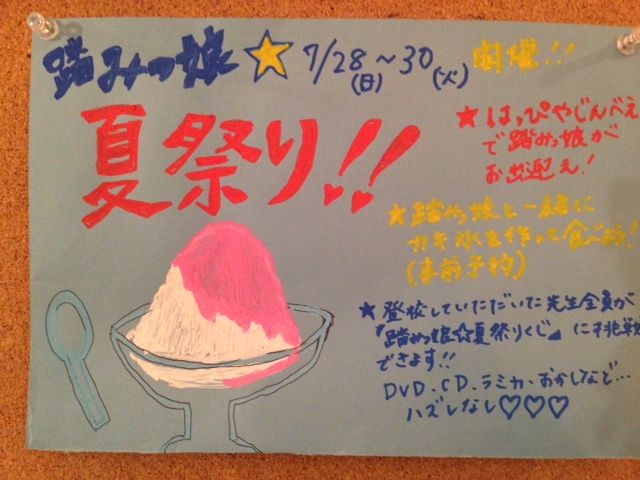 踏みっ娘☆7/28(日)～30(火)開催!!
夏祭り!!
★はっぴやじんべえ
で踏みっ娘が
お出迎え!
★踏みっ娘と一緒に
カキ氷を作って食べよう!
(事前予約)
★登校していただいた先生全員が
『踏みっ娘☆夏祭りくじ』に挑戦
できます!!
DVD、CD、ラミカ、おかしなど…
ハズレなし♡♡♡